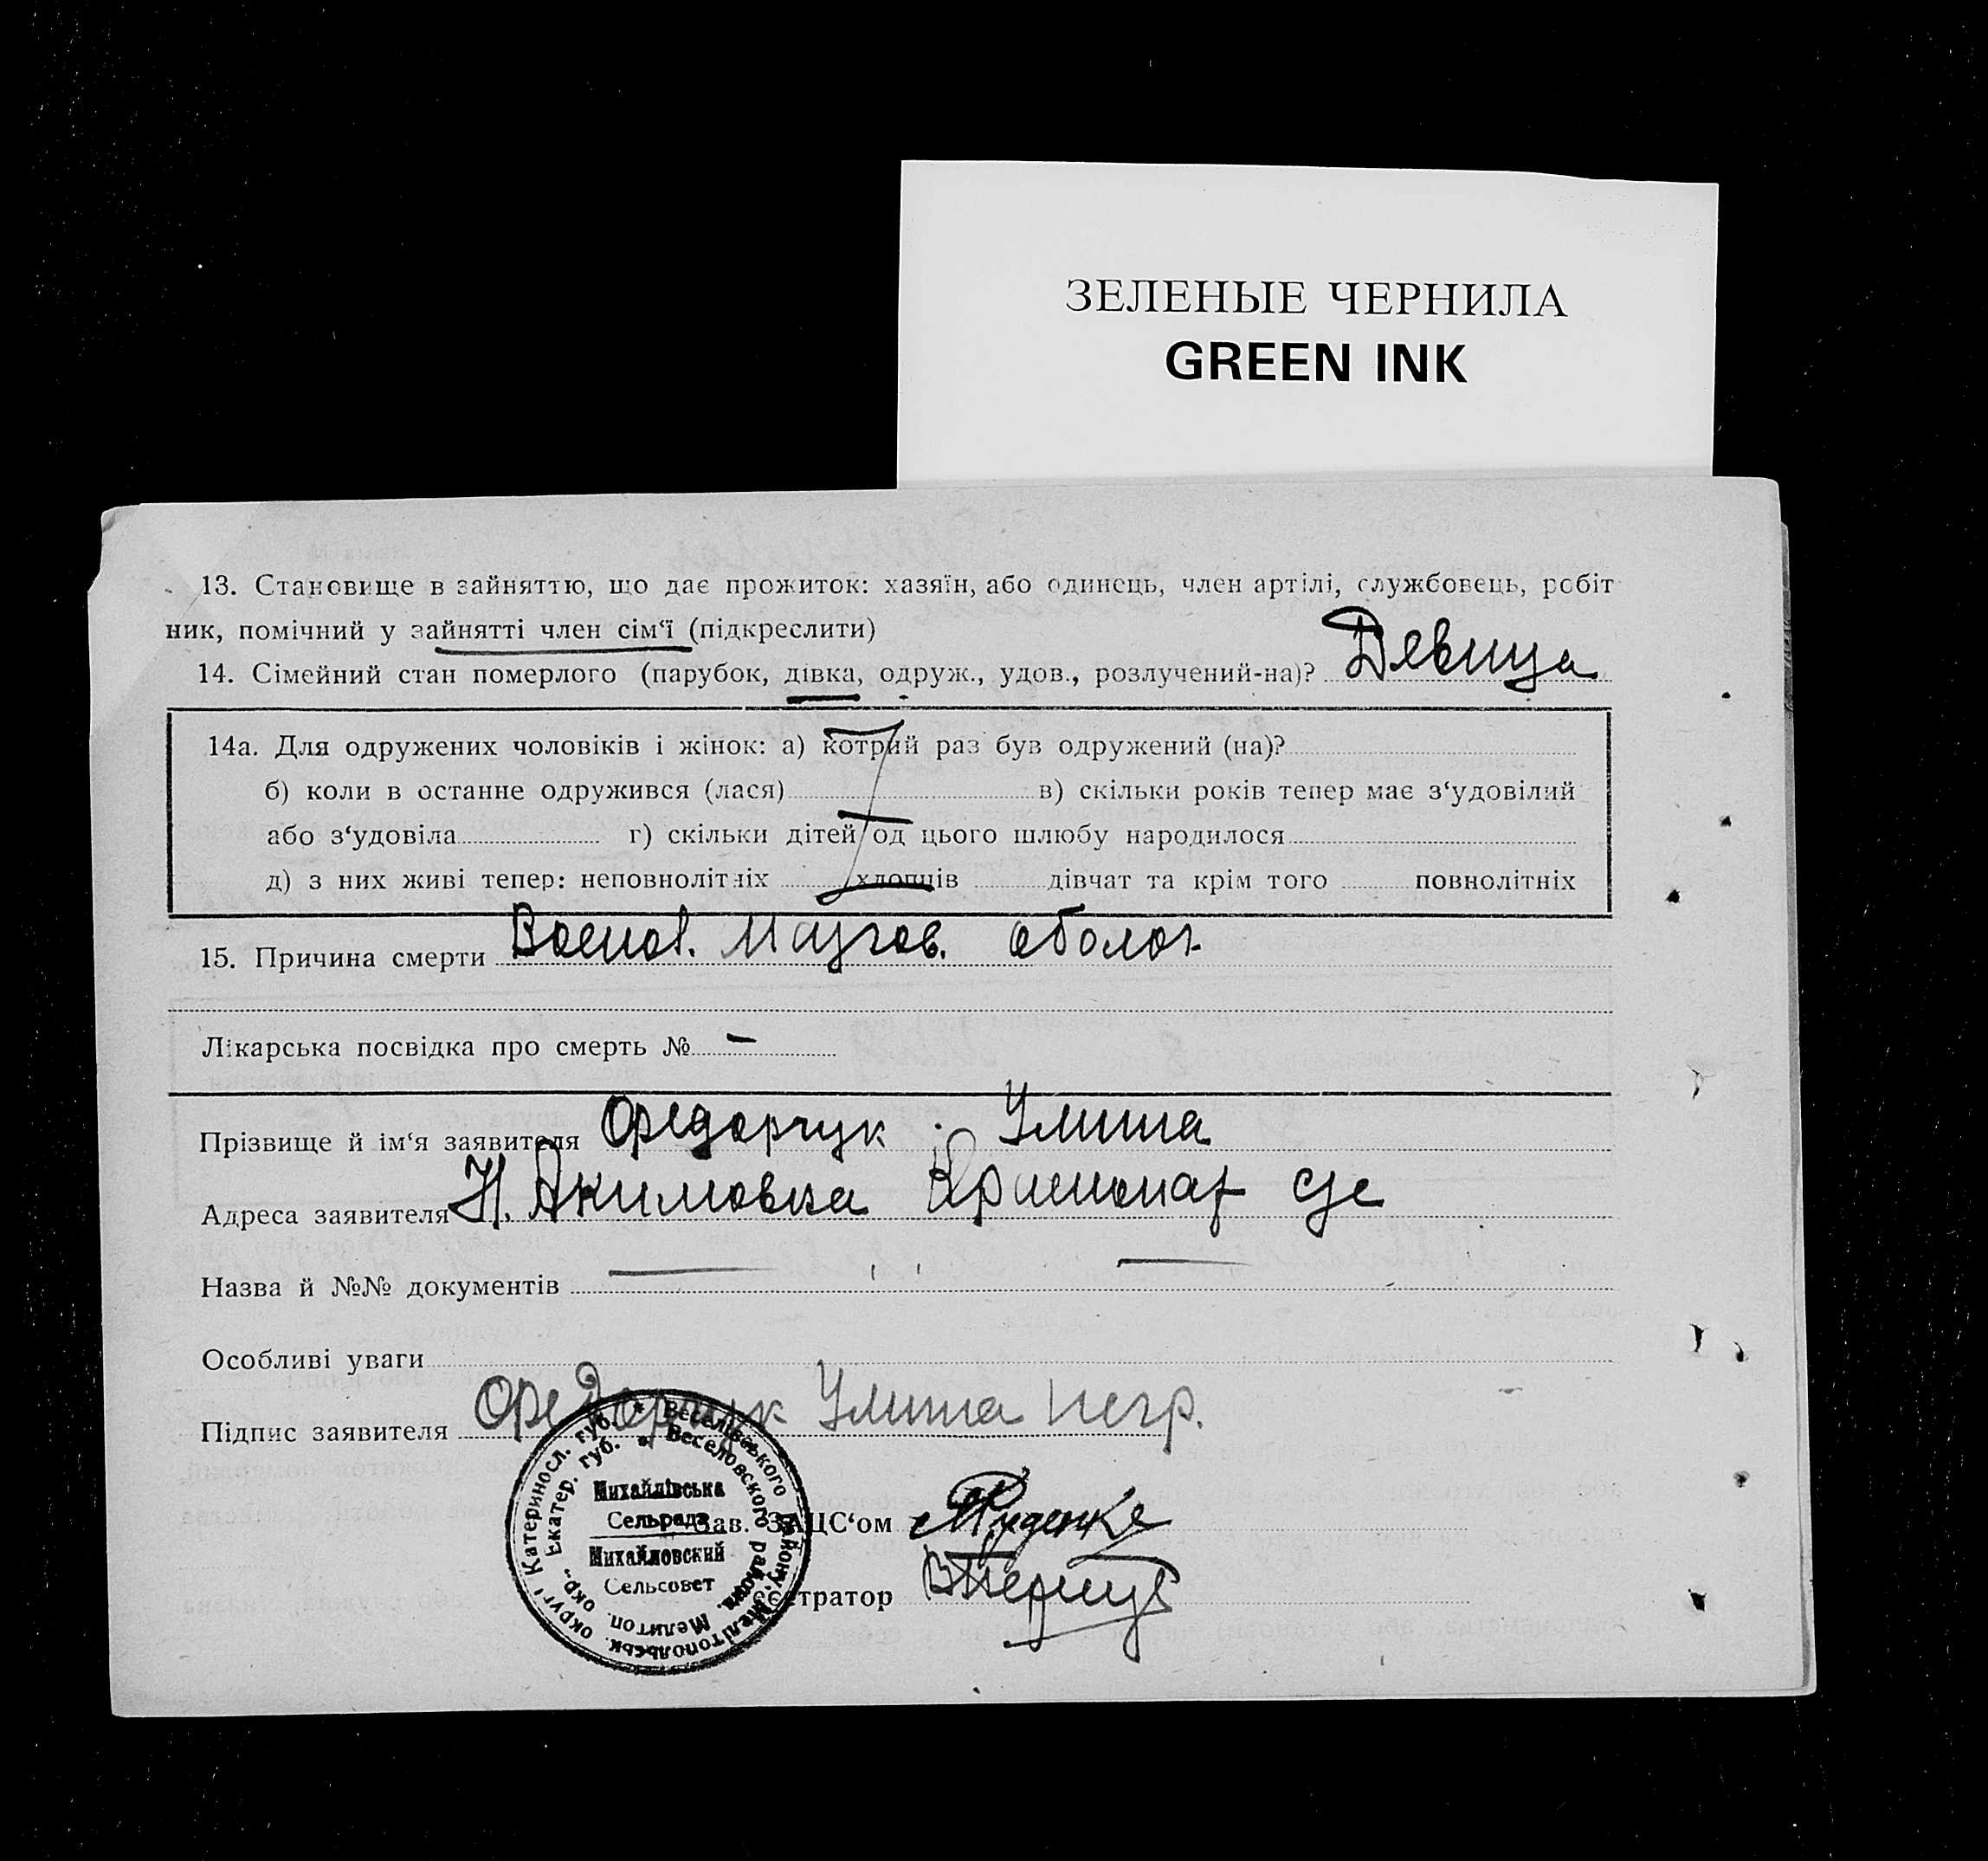 ЗЕЛЕНЫЕ ЧЕРНИЛА
GREEN INK
13. Становище в зайняттю, що дає прожиток: хазяїн, або одинець, член артілі, службовець, робіт
ник, помічний у зайнятті член сім‘ї (підкреслити)
14. Сімейний стан померлого (парубок, дівка, одруж., удов., розлучений-на)? Девица
14а. Для одружених чоловіків і жінок: а) котрий раз був одружений (на)?
б) коли в останне одружився (лася) в) скільки років тепер має з‘удовілий
або з‘удовіла г) скільки дітей од цього шлюбу народилося
д) з них живі тепер: неповнолітніх хлопців дівчат та крім того повнолітніх
15. Причина смерти Воспол. Мозгов. оболоч
Лікарська посвідка про смерть № —
Прізвище й ім‘я заявителя Федорчук Улита
Адреса заявителя Н. Акимовка
Назва й №№ документів
Особливі уваги
Підпис заявителя Федорчук Улита негр.
Зав. ЗАЦС‘ом Руденко
стратор
Катериносл. губ. * Веселівського району, Мелітопольськ. округ
Екатер. губ. * Веселовского района. Мелитоп. окр.
Михайлівська
Сельрада
Михайловский
Сельсовет